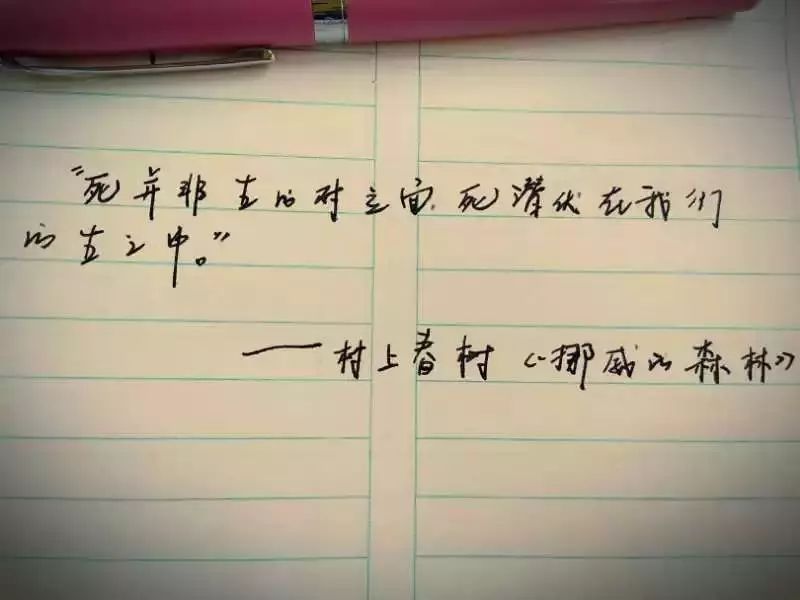 “死并非生的对立面，死潜伏在我们
的生之中。”
——村上春树《挪威的森林》